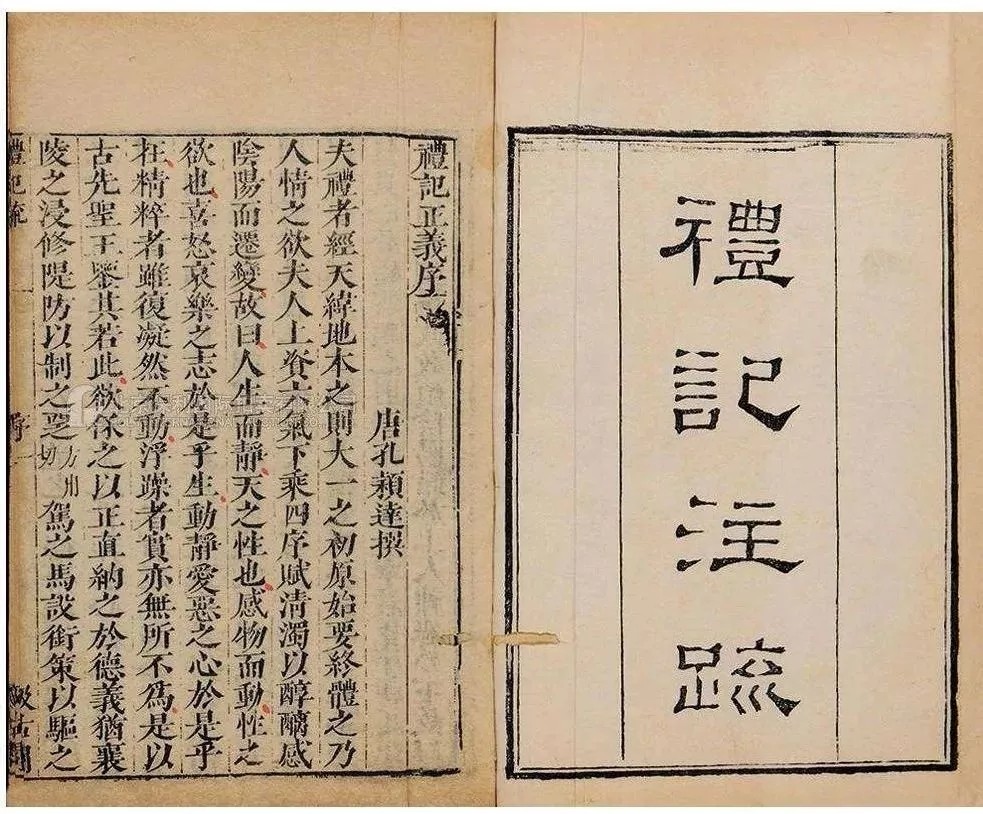 禮記注疏
禮記正義序
唐孔穎達撰
夫禮者經天緯地本之則大一之初原始要終體之乃
人情之欲夫人上資六氣下乘四序賦清濁以醇醨感
陰陽而遷變故曰人生而靜天之性也感物而動性之
欲也喜怒哀樂之志於是乎生動靜愛惡之心於是乎
在精粹者雖復凝然不動浮躁者實亦無所不為是以
古先聖王鑒其若此欲保之以正直納之於德義猶襄
陵之浸修隄防以制之覂方用切駕之馬設銜策以驅之
禮記疏
序
汲古閣